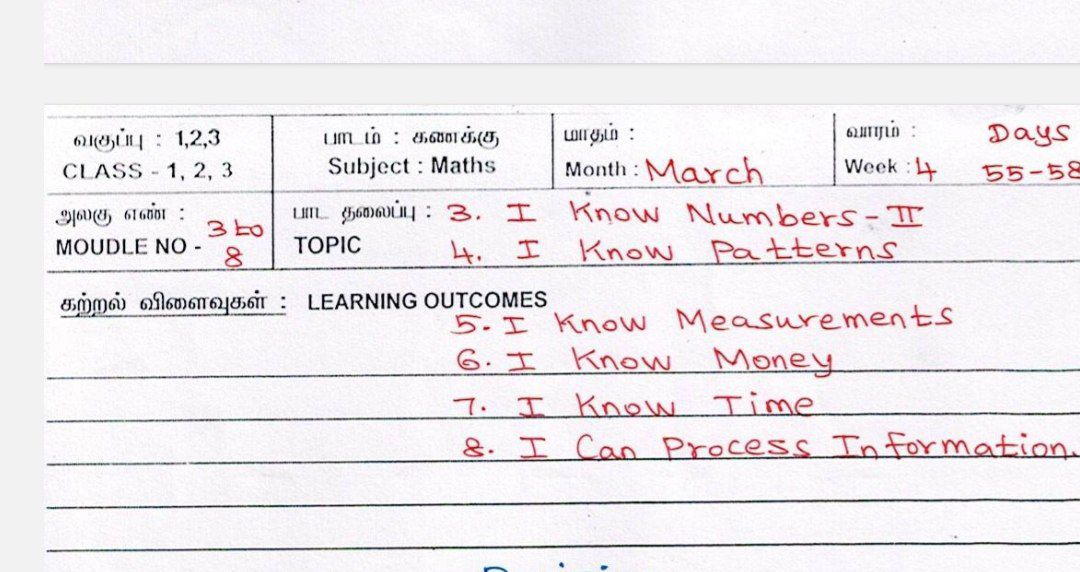 வகுப்பு : 1,2,3
CLASS - 1, 2, 3
பாடம் : கணக்கு
Subject : Maths
மாதம் :
Month : March
வாரம் :
Week : 4
Days
55-58
அலகு எண் :
MOUDLE NO - 3 to 8
பாட தலைப்பு : 3. I Know Numbers - II
TOPIC 4. I Know Patterns
கற்றல் விளைவுகள் : LEARNING OUTCOMES
5. I Know Measurements
6. I Know Money
7. I Know Time
8. I Can Process Information.